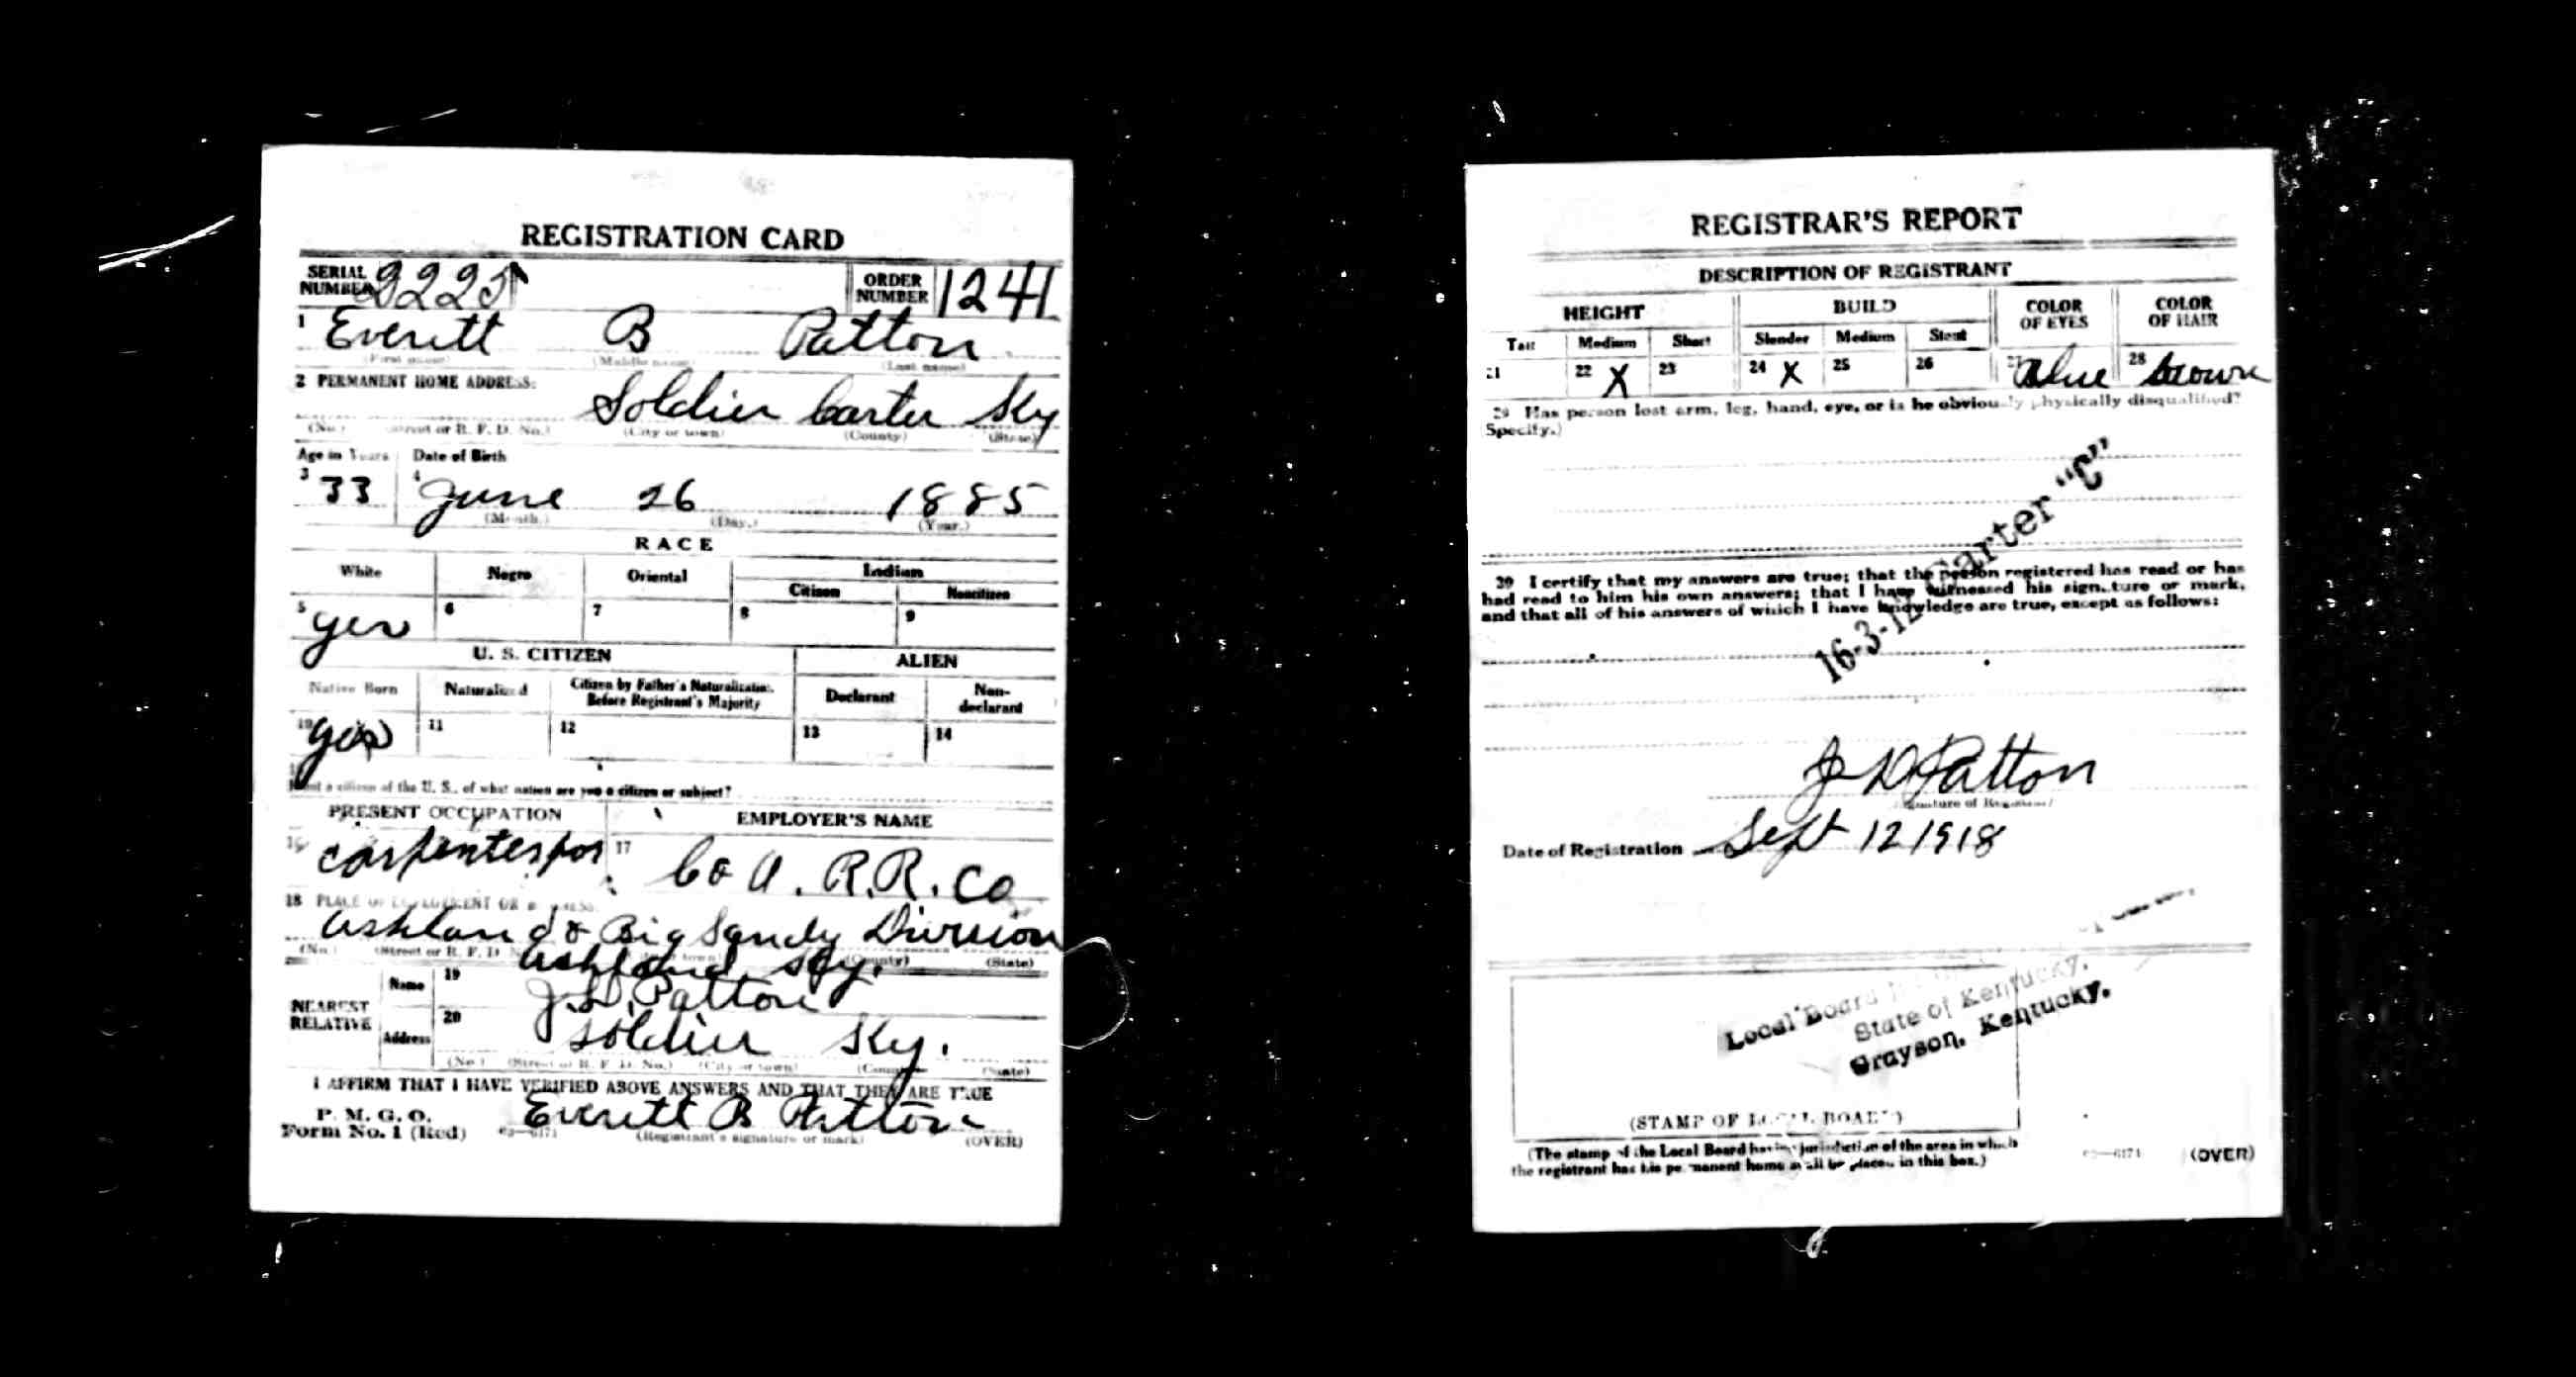 REGISTRATION CARD
SERIAL NUMBER 2225 ORDER NUMBER 1241
1 Everitt B Patton
(First name) (Middle name) (Last name)
2 PERMANENT HOME ADDRESS:
Soldier Carter Ky
(No.) (Street or R. F. D. No.) (City or town) (County) (State)
Age in Years Date of Birth
3 33 4 June 26 1885
(Month.) (Day.) (Year.)
RACE
White Negro Oriental Indian
Citizen Noncitizen
5 yes 6 7 8 9
U. S. CITIZEN ALIEN
Native Born Naturalized Citizen by Father's Naturalization Before Registrant's Majority Declarant Non-declarant
10 yes 11 12 13 14
a citizen of the U. S., of what nation are you a citizen or subject?
PRESENT OCCUPATION EMPLOYER'S NAME
16 carpenter for 17 Co R.R. Co
18 PLACE OF EMPLOYMENT OR BUSINESS:
Ashland & Big Sandy Division
(No.) (Street or R. F. D. (County) (State)
Ashland, Ky.
NEAREST RELATIVE Name 19 J.D. Patton
Address 20 Soldier Ky.
(No.) (Street or R. F. D. No.) (City or town) (County) (State)
I AFFIRM THAT I HAVE VERIFIED ABOVE ANSWERS AND THAT THEY ARE TRUE
P. M. G. O.
Form No. 1 (Red) Everitt B Patton
(Registrant's signature or mark) (OVER)
REGISTRAR'S REPORT
DESCRIPTION OF REGISTRANT
HEIGHT BUILD COLOR OF EYES COLOR OF HAIR
Tall Medium Short Slender Medium Stout
21 22 X 23 24 X 25 26 27 Blue 28 brown
29 Has person lost arm, leg, hand, eye, or is he obviously physically disqualified?
(Specify.)
16-3-12 Carter "C"
30 I certify that my answers are true; that the person registered has read or has
had read to him his own answers; that I have witnessed his signature or mark,
and that all of his answers of which I have knowledge are true, except as follows:
J D Patton
(Signature of Registrar)
Date of Registration Sept 12 1918
Local Board
State of Kentucky,
Grayson, Kentucky.
(STAMP OF LOCAL BOARD)
(The stamp of the Local Board having jurisdiction of the area in which
the registrant has his permanent home shall be placed in this box.)
(OVER)